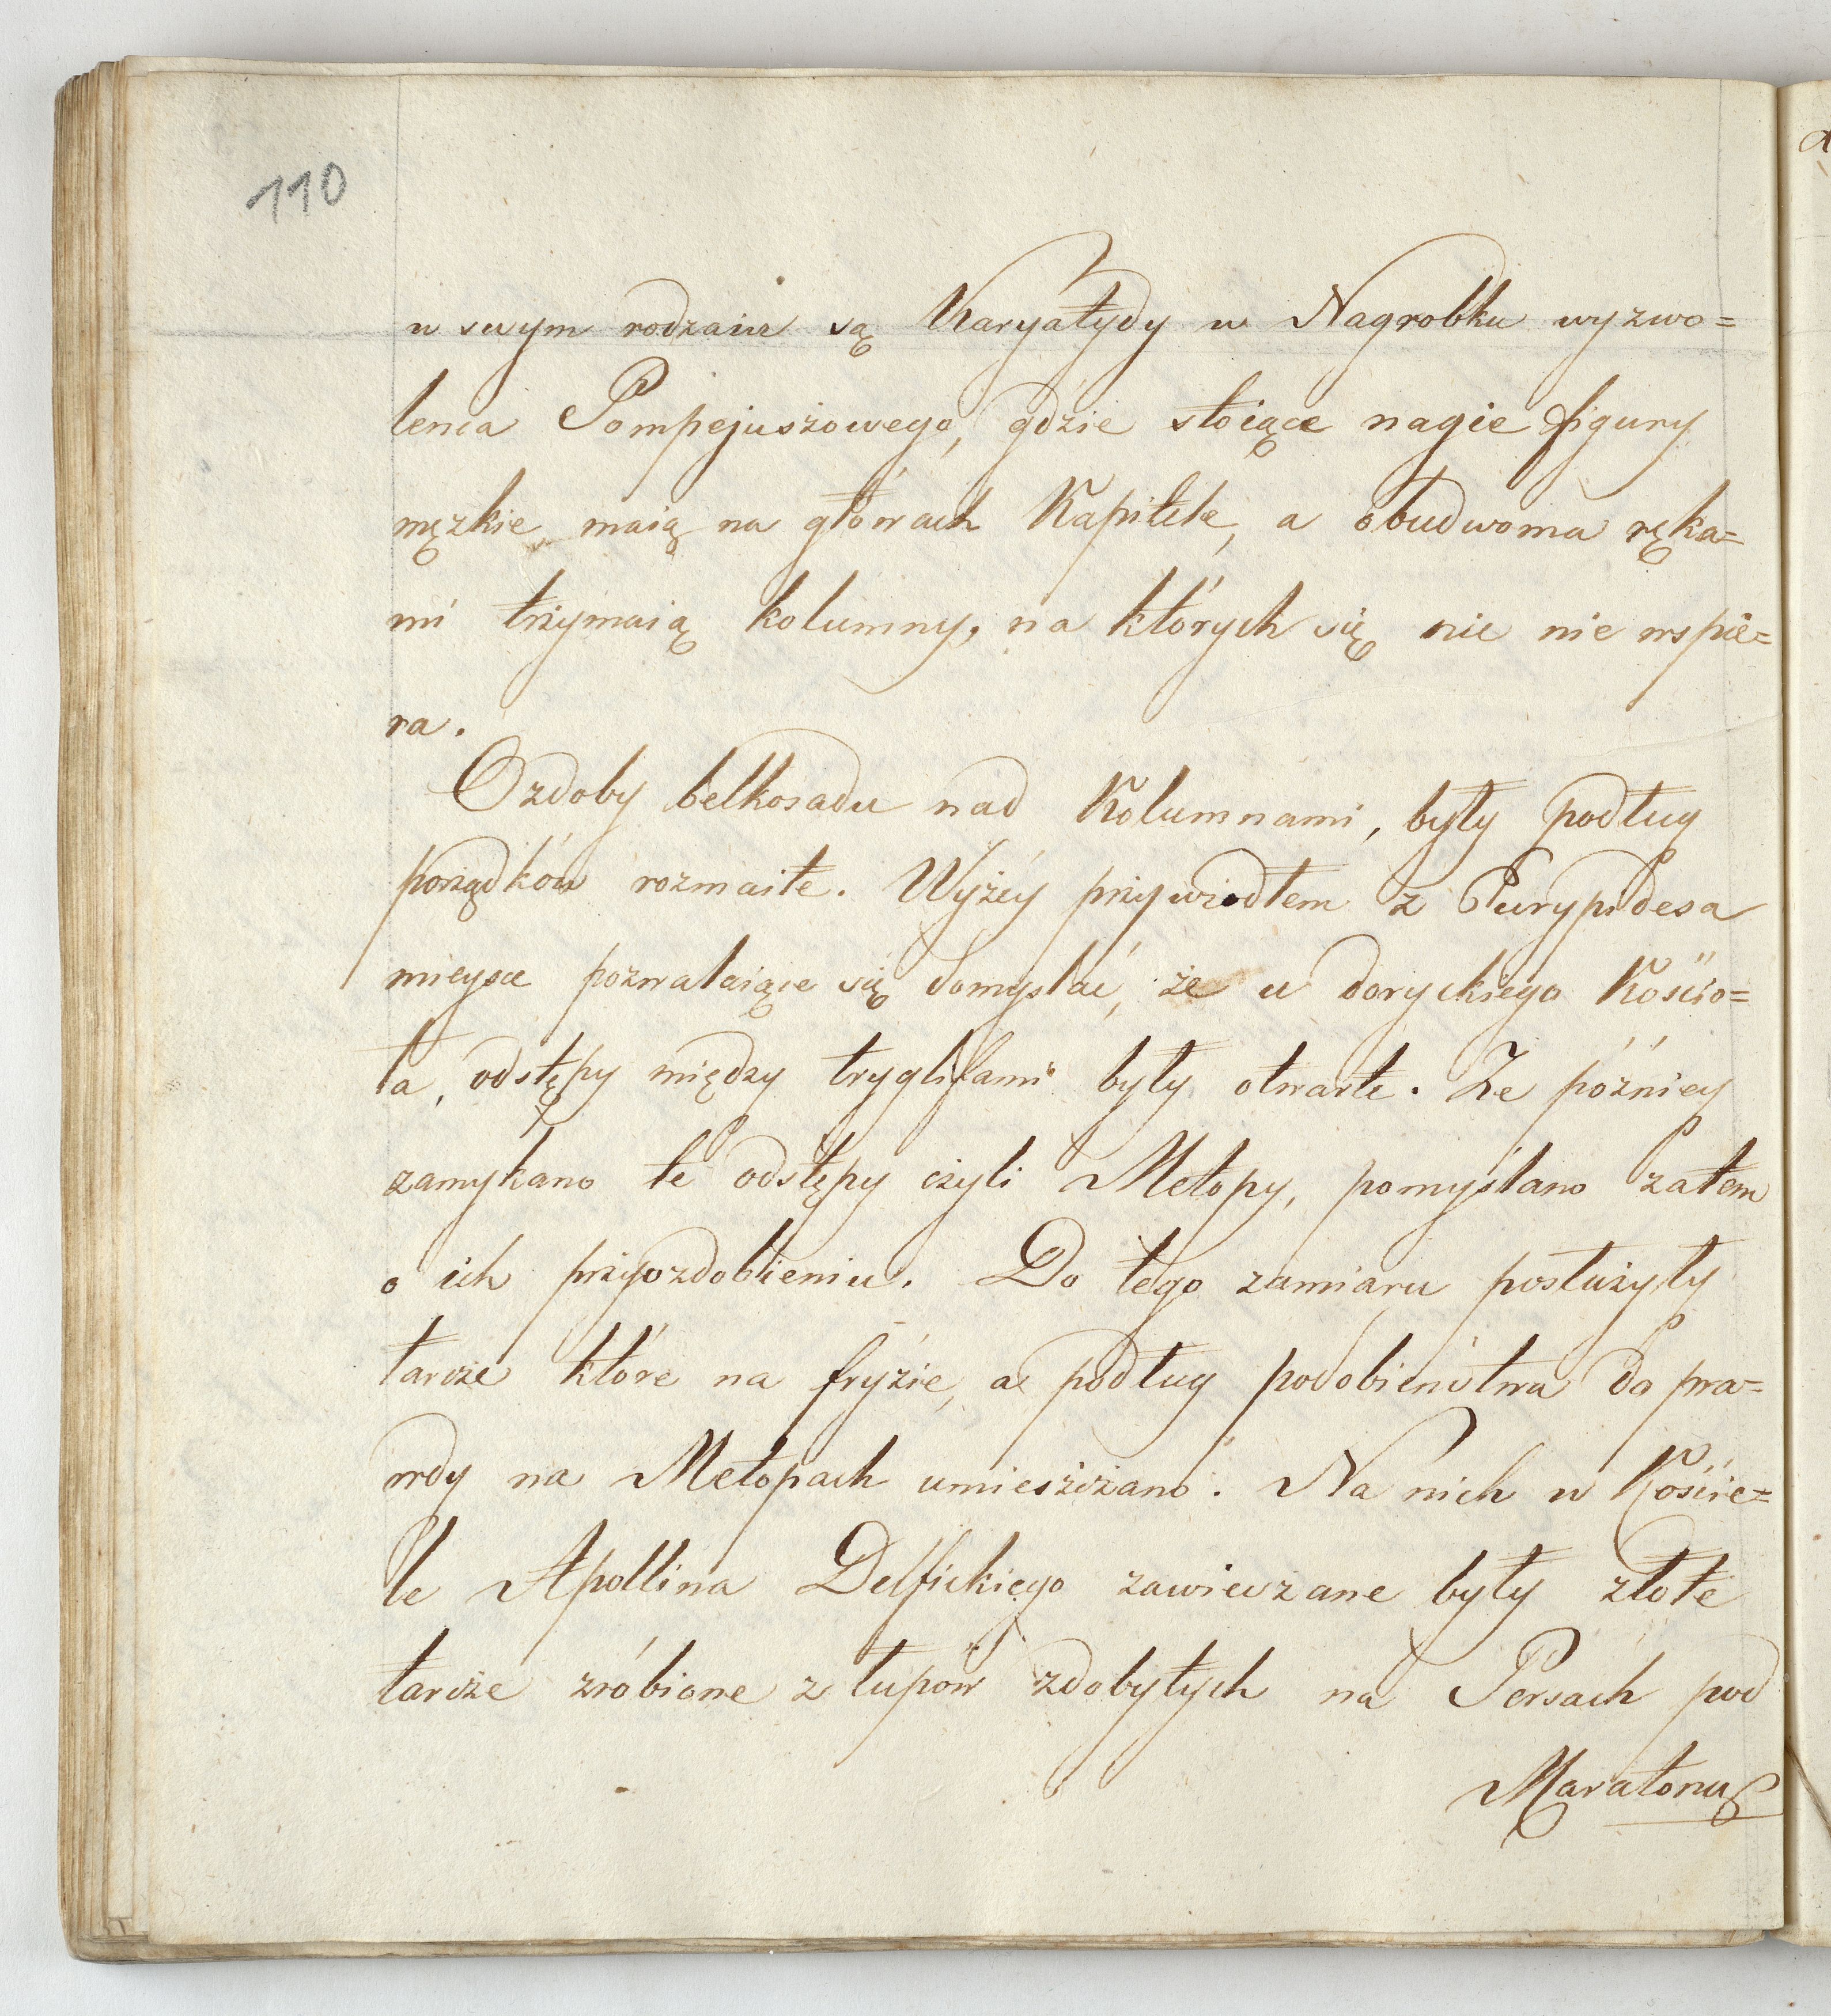 110
w swym rodzaiu są Karyatydy w Nagrobku wyzwo=
lenca Pompejuszowego, gdzie stoiące nagie figury
męzkie, maią na głowach Kapitele, a obudwoma ręka=
mi trzymaią kolumny, na których się nic nie wspie=
ra.
Ozdoby belkosadu nad Kolumnami, były podług
porządków rozmaite. Wyżéy przywiodłem z Eurypidesa
mieysce pozwalaiące się domyślać, że u doryckiego Kościo=
ła, odstępy między tryglifami były otwarte. Że późniey
zamykano te odstępy czyli Metopy, pomyślano zatem
o ich przyozdobieniu. Do tego zamiaru posłużyły
tarcze które na fryzie, a podług podobieństwa do pra=
wdy na Metopach umieszczano. Na nich w Koście=
le Apollina Delfickiego zawieszane były złote
tarcze zróbione z łupów zdobytych na Persach pod
Maratonu